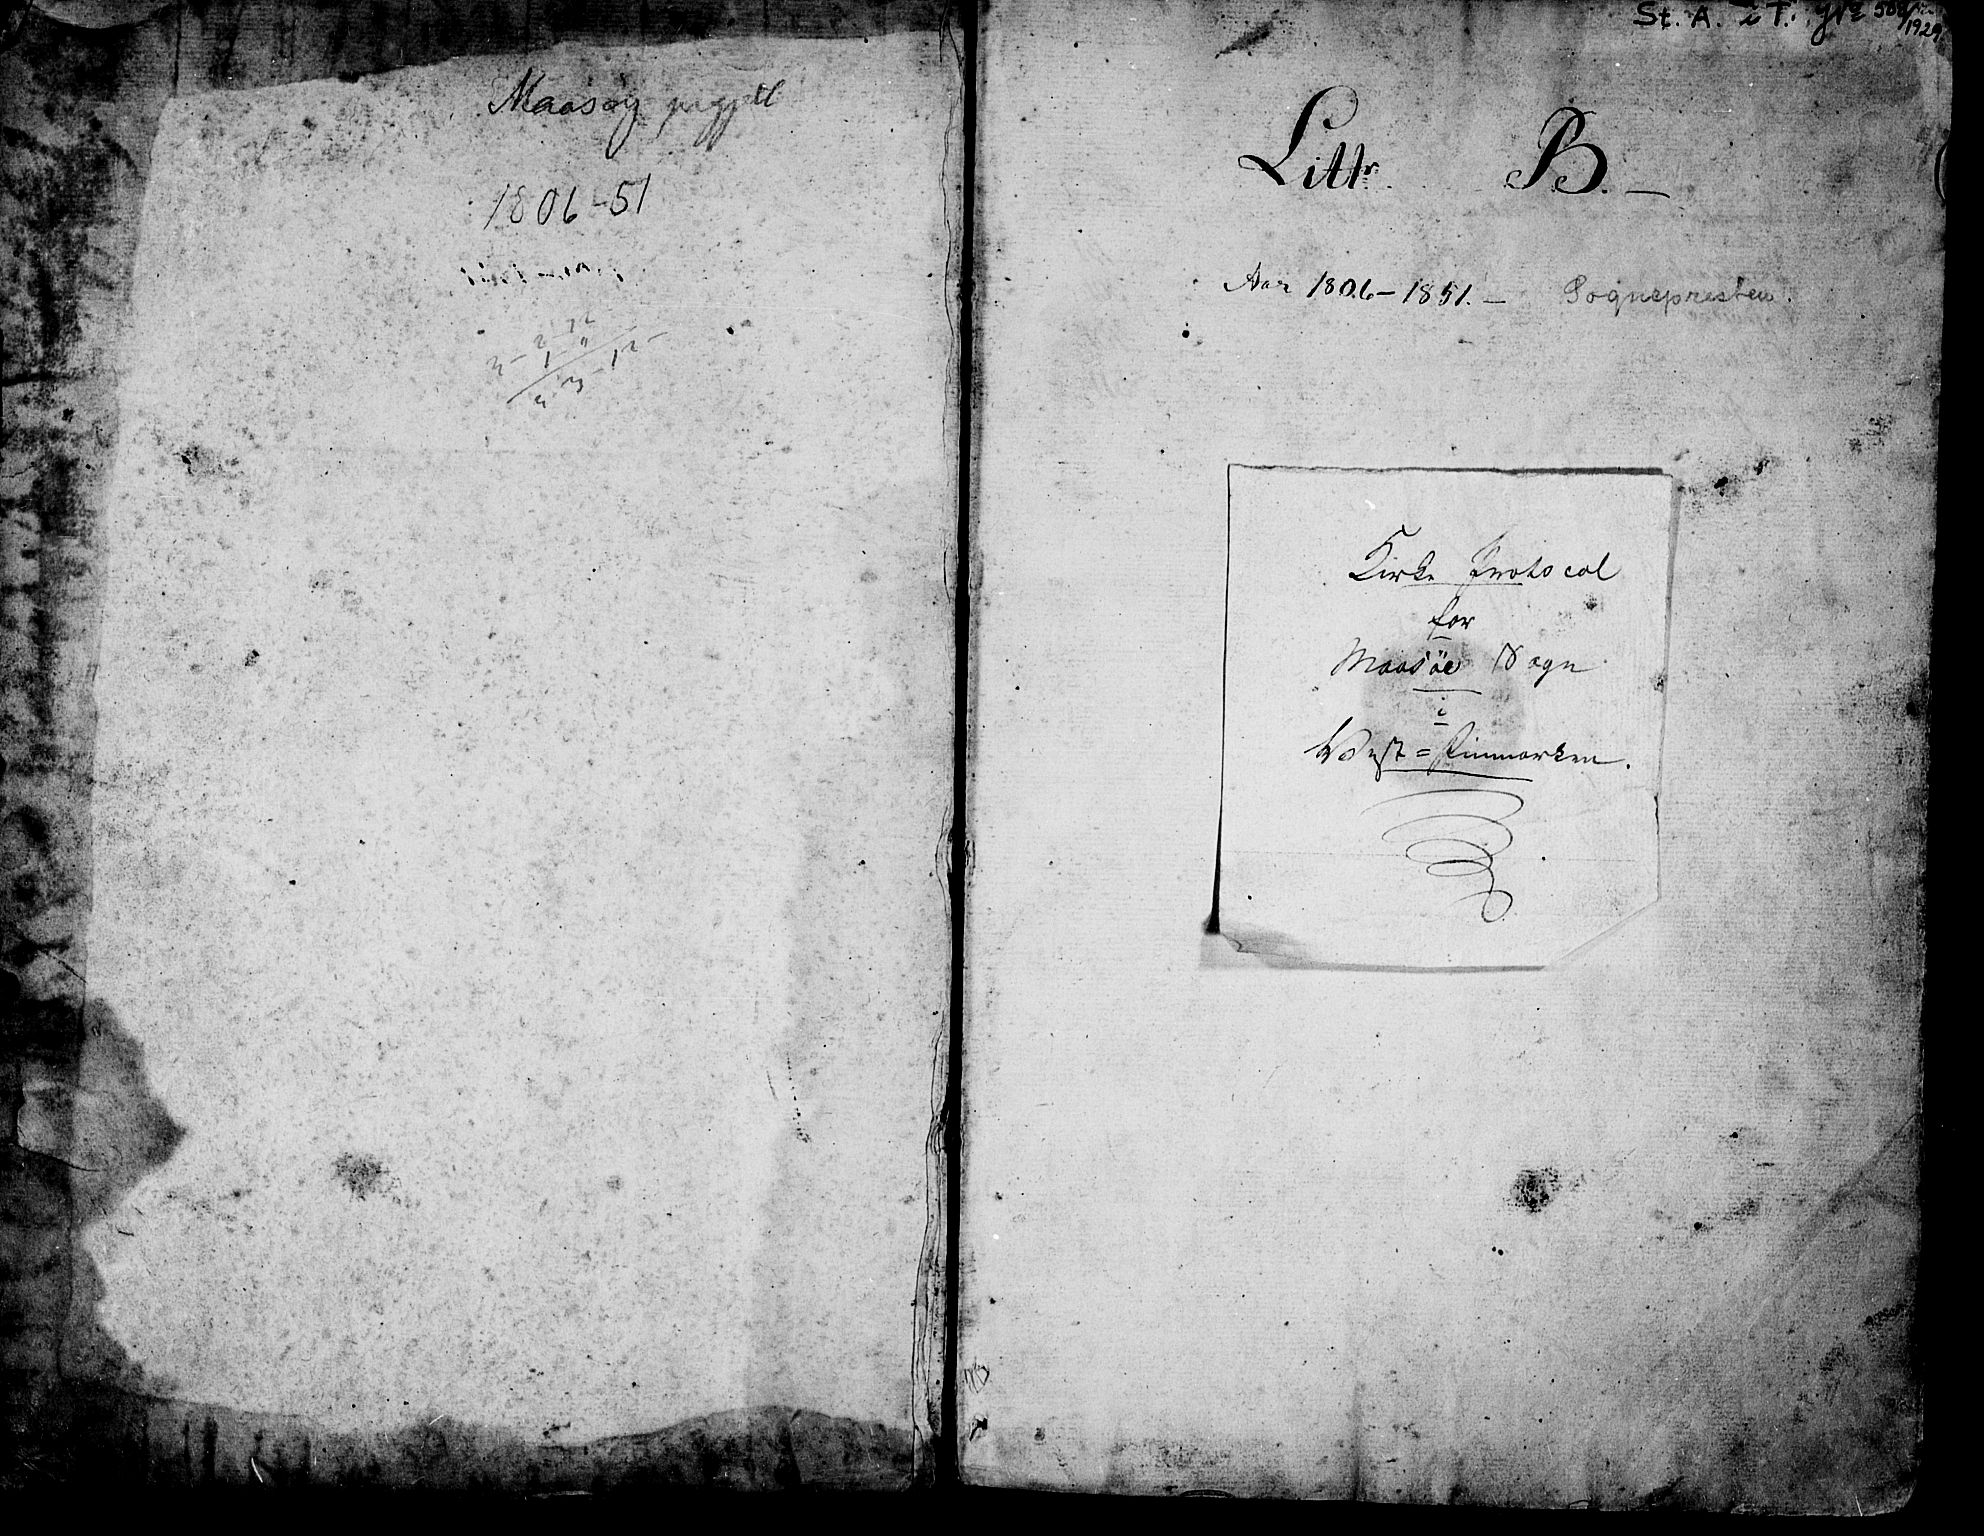 Maasøy prgjeld
1806-51
St. A. i T. 1929
Littr B.
Aar 1806-1851. - Sognepresten.
Kirke Protocol
for
Maasöe Sogn
i
West=Finmarken.